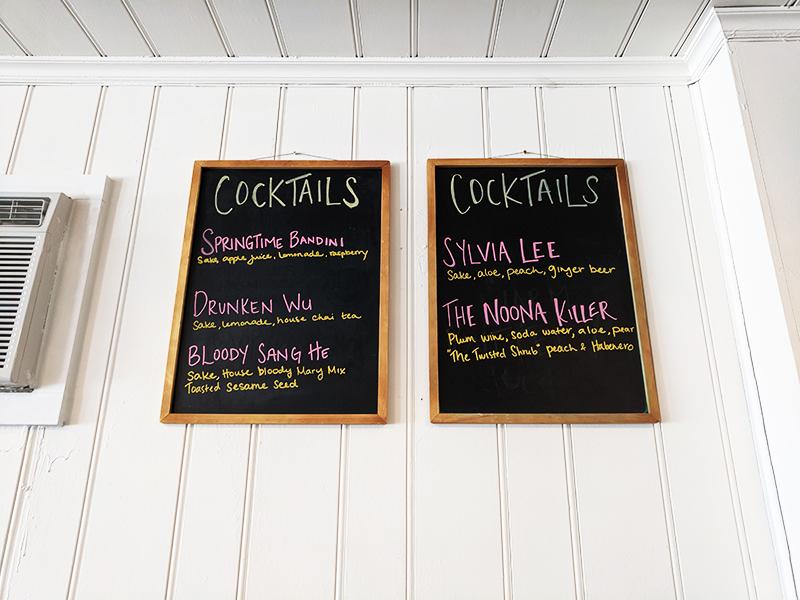 COCKTAILS
SPRINGTIME BANDINI
Sake, apple juice, lemonade, raspberry
DRUNKEN WU
Sake, lemonade, house chai tea
BLOODY SANG HE
Sake, House bloody Mary Mix
Toasted Sesame Seed
COCKTAILS
SYLVIA LEE
Sake, aloe, peach, ginger beer
THE NOONA KILLER
Plum wine, soda water, aloe, pear
"The Twisted Shrub" peach & Habenero